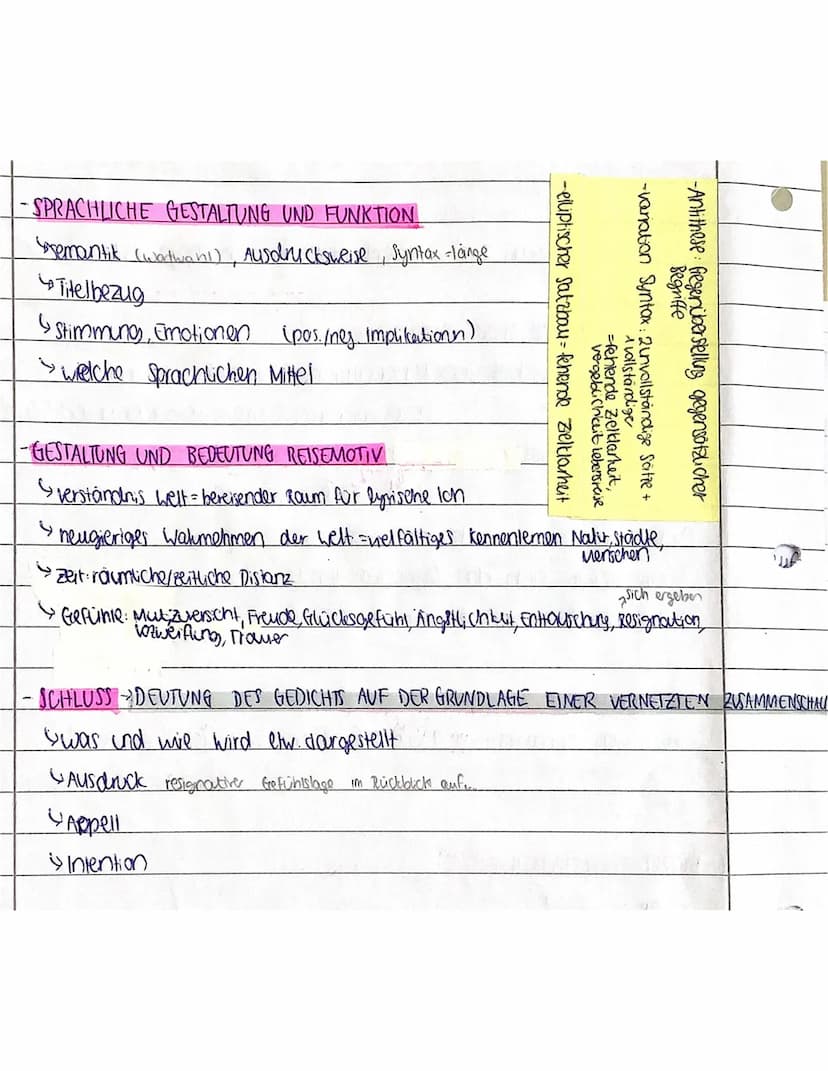 - SPRACHLICHE GESTALTUNG UND FUNKTION
↳ semantik (wortwahl), Ausdrucksweise, Syntax = länge
↳ Titelbezug
↳ Stimmung, Emotionen (pos./neg. Implikationn)
↳ welche sprachlichen Mittel
- Antithese: Gegenüberstellung gegensätzlicher
Begriffe
- Variation Syntax: 2 unvollständige Sätze +
1 vollständiger
= fehlende Zielklarheit,
vergeblichkeit lebensreise
- elliptischer Satzbau = fehlende Zielklarheit
- GESTALTUNG UND BEDEUTUNG REISEMOTIV
↳ verständnis Welt = bereisender Raum für lyrische Ich
↳ neugieriges Wahrnehmen der Welt = vielfältiges kennenlernen Natur, städte,
Menschen
↳ zeit: räumliche/zeitliche Distanz
→ sich ergeben
↳ Gefühle: Mut, zuversicht, Freude, Glücksgefühl, Ängstlichkeit, Enttäuschung, Resignation,
verzweiflung, Trauer
- SCHLUSS → DEUTUNG DES GEDICHTS AUF DER GRUNDLAGE EINER VERNETZTEN ZUSAMMENSCHAU
↳ was und wie wird etw. dargestellt
↳ Ausdruck resignativer Gefühlslage im Rückblick auf...
↳ Appell
↳ Intention